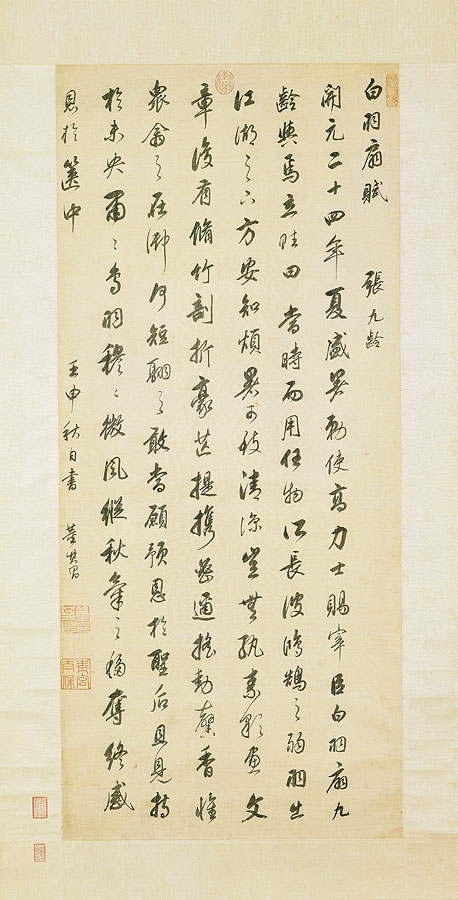 白羽扇賦 張九齡
開元二十四年夏盛暑勅使高力士賜宰臣白羽扇九
齡與焉立賦曰當時而用任物所長彼鴻鵠之弱羽出
江湖之下方安知煩暑可致清涼豈無紈素彩畫文
章復有脩竹剖析豪芒提攜密邇搖動馨香惟
眾禽之在御何短翮之敢當顧預恩於聖后且見持
於未央肅〻鳥羽穆〻微風縱秋氣之移奪終感
恩於篋中 壬申秋日書 董其昌